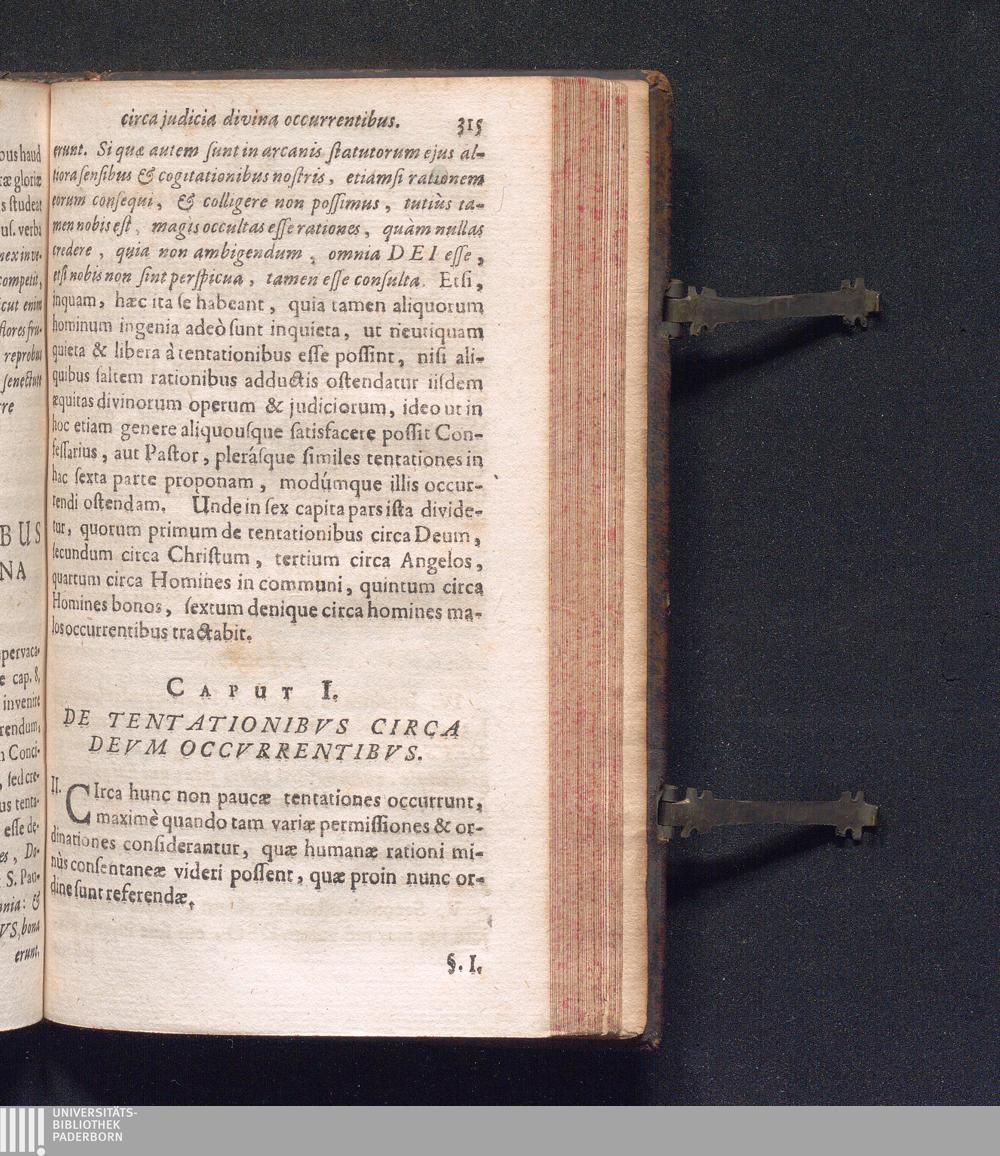 circa judicia divina occurrentibus. 315
erunt. Si quæ autem ſunt in arcanis ſtatutorum ejus al-
tiora ſenſibus & cogitationibus noſtris, etiamſi rationem
eorum conſequi, & colligere non poſſimus, tutiùs ta-
men nobis eſt, magis occultas eſſe rationes, quàm nullas
credere, quia non ambigendum, omnia DEI eſſe,
etſi nobis non ſint perſpicua, tamen eſſe conſulta. Etſi,
inquam, hæc ita ſe habeant, quia tamen aliquorum
hominum ingenia adeò ſunt inquieta, ut neutiquam
quieta & libera à tentationibus eſſe poſſint, niſi ali-
quibus ſaltem rationibus adductis oſtendatur iiſdem
æquitas divinorum operum & judiciorum, ideo ut in
hoc etiam genere aliquouſque ſatisfacere poſſit Con-
feſſarius, aut Paſtor, pleráſque ſimiles tentationes in
hac ſexta parte proponam, modúmque illis occur-
rendi oſtendam. Unde in ſex capita pars iſta divide-
tur, quorum primum de tentationibus circa Deum,
ſecundum circa Chriſtum, tertium circa Angelos,
quartum circa Homines in communi, quintum circa
Homines bonos, ſextum denique circa homines ma-
los occurrentibus tractabit.
CAPUT I.
DE TENTATIONIBVS CIRCA
DEVM OCCVRRENTIBVS.
II. CIrca hunc non paucæ tentationes occurrunt,
maximè quando tam variæ permiſſiones & or-
dinationes conſiderantur, quæ humanæ rationi mi-
nùs conſentaneæ videri poſſent, quæ proin nunc or-
dine ſunt referendæ.
§. I.
bus haud
ræ gloriæ
s ſtudeat
uſ. verbi
competit,
icut enim
ſtores fru-
reprobus
ſenectute
BUS
NA
pervaca-
e cap. 8,
invenire
rendum,
n Conci-
, ſed cre-
us tenta-
eſſe de-
es, Do-
S. Pau-
nia: &
VS, bona
erunt.
UNIVERSITÄTS-
BIBLIOTHEK
PADERBORN